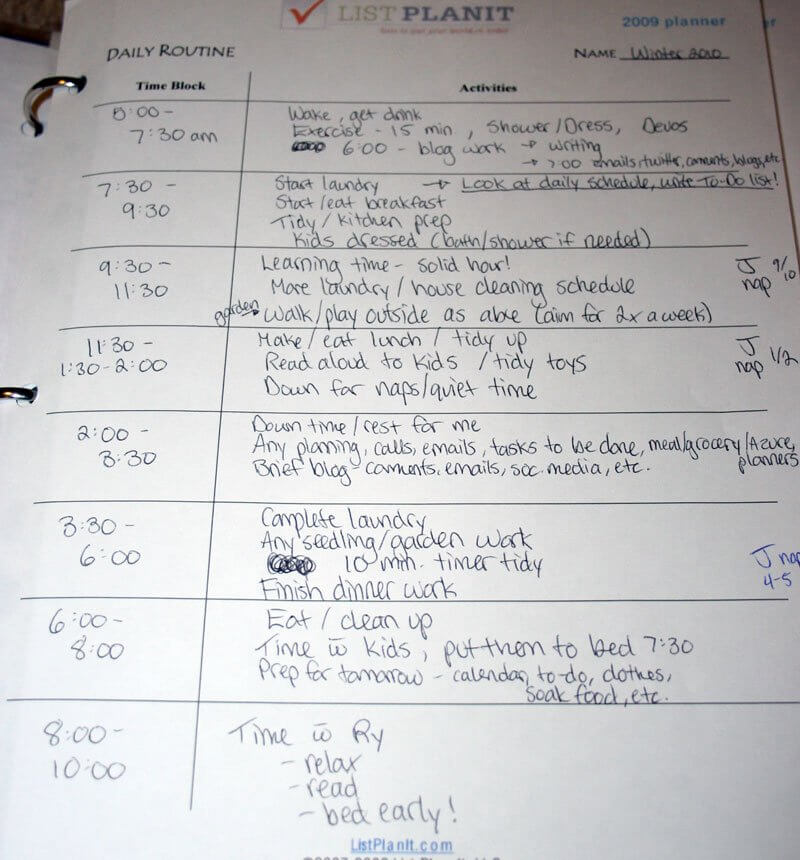 LISTPLANIT
2009 planner
er
DAILY ROUTINE
NAME Winter 2010
Time Block
Activities
5:00 -
7:30 am
Wake, get drink
Exercise - 15 min, Shower/Dress, Devos
6:00 - blog work → writing
→ 7:00 emails, twitter, coments, blogs, etc.
7:30 -
9:30
Start laundry → Look at daily schedule, write To-Do list!
Start/eat breakfast
Tidy / kitchen prep
Kids dressed (bath/shower if needed)
9:30 -
11:30
Learning time - solid hour!
More laundry / house cleaning schedule
garden Walk/play outside as able (aim for 2x a week)
J 9/10
nap
11:30 -
1:30-2:00
Make / eat lunch / tidy up
Read aloud to kids / tidy toys
Down for naps/quiet time
J
nap 1/2
2:00 -
3:30
Down time / rest for me
Any planning, calls, emails, tasks to be done, meal/grocery/Azure,
planners
Brief blog coments, emails, soc. media, etc.
3:30 -
6:00
Complete laundry
Any seedling/garden work
10 min. timer tidy
Finish dinner work
J nap
4-5
6:00 -
8:00
Eat / clean up
Time w̄ kids, put them to bed 7:30
Prep for tomorrow - calendar, to-do, clothes,
soak food, etc.
8:00 -
10:00
Time w̄ Ry
- relax
- read
- bed early!
ListPlanIt.com